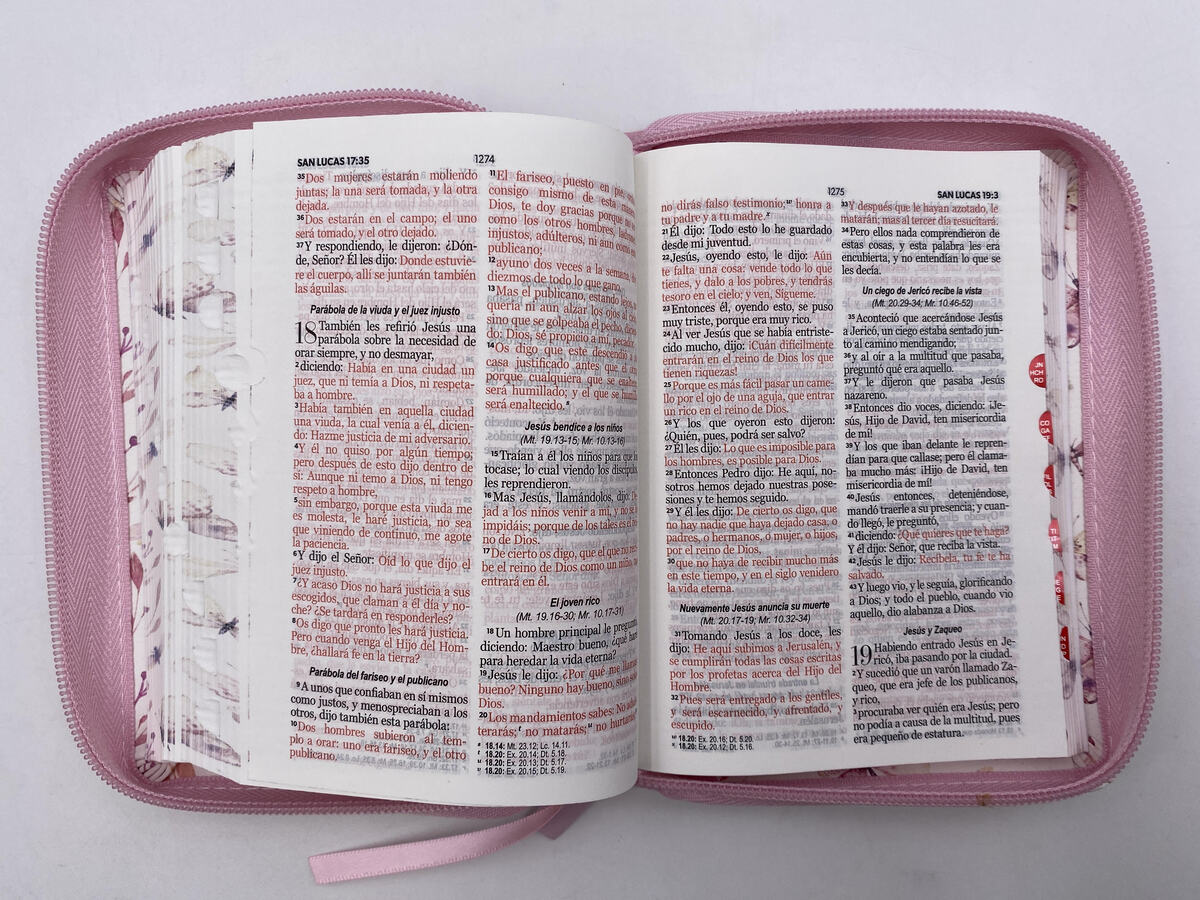 SAN LUCAS 17:35
1274
35 Dos mujeres estarán moliendo
juntas; la una será tomada, y la otra
dejada.
36 Dos estarán en el campo; el uno
será tomado, y el otro dejado.
37 Y respondiendo, le dijeron: ¿Dón-
de, Señor? Él les dijo: Donde estuvie-
re el cuerpo, allí se juntarán también
las águilas.
Parábola de la viuda y el juez injusto
18 También les refirió Jesús una
parábola sobre la necesidad de
orar siempre, y no desmayar,
2 diciendo: Había en una ciudad un
juez, que ni temía a Dios, ni respeta-
ba a hombre.
3 Había también en aquella ciudad
una viuda, la cual venía a él, dicien-
do: Hazme justicia de mi adversario.
4 Y él no quiso por algún tiempo;
pero después de esto dijo dentro de
sí: Aunque ni temo a Dios, ni tengo
respeto a hombre,
5 sin embargo, porque esta viuda me
es molesta, le haré justicia, no sea
que viniendo de continuo, me agote
la paciencia.
6 Y dijo el Señor: Oíd lo que dijo el
juez injusto.
7 ¿Y acaso Dios no hará justicia a sus
escogidos, que claman a él día y no-
che? ¿Se tardará en responderles?
8 Os digo que pronto les hará justicia.
Pero cuando venga el Hijo del Hom-
bre, ¿hallará fe en la tierra?
Parábola del fariseo y el publicano
9 A unos que confiaban en sí mismos
como justos, y menospreciaban a los
otros, dijo también esta parábola:
10 Dos hombres subieron al tem-
plo a orar: uno era fariseo, y el otro
publicano.
11 El fariseo, puesto en pie,
consigo mismo de esta
Dios, te doy gracias porque no
como los otros hombres,
injustos, adúlteros, ni aun como
publicano;
12 ayuno dos veces a la semana,
diezmos de todo lo que gano.
13 Mas el publicano, estando lejos,
quería ni aun alzar los ojos al
sino que se golpeaba el pecho,
do: Dios, sé propicio a mí, pecador.
14 Os digo que este descendió a
casa justificado antes que el
porque cualquiera que se
será humillado; y el que se
será enaltecido.
Jesús bendice a los niños
(Mt. 19.13-15; Mr. 10.13-16)
15 Traían a él los niños para que
tocase; lo cual viendo los
les reprendieron.
16 Mas Jesús, llamándolos, dijo: De-
jad a los niños venir a mí, y no se
impidáis; porque de los tales es el
no de Dios.
17 De cierto os digo, que el que no
be el reino de Dios como un niño,
entrará en él.
El joven rico
(Mt. 19.16-30; Mr. 10.17-31)
18 Un hombre principal le
diciendo: Maestro bueno, ¿qué
para heredar la vida eterna?
19 Jesús le dijo: ¿Por qué me
bueno? Ninguno hay bueno, sino
Dios.
20 Los mandamientos sabes: No
terarás; no matarás; no hurtarás;
18.14: Mt. 23.12; Lc. 14.11.
18.20: Ex. 20.14; Dt. 5.18.
18.20: Ex. 20.13; Dt. 5.17.
18.20: Ex. 20.15; Dt. 5.19.
1275
SAN LUCAS 19:3
no dirás falso testimonio; honra a
tu padre y a tu madre.
21 Él dijo: Todo esto lo he guardado
desde mi juventud.
22 Jesús, oyendo esto, le dijo: Aún
te falta una cosa: vende todo lo que
tienes, y dalo a los pobres, y tendrás
tesoro en el cielo; y ven, Sígueme.
23 Entonces él, oyendo esto, se puso
muy triste, porque era muy rico.
24 Al ver Jesús que se había entriste-
cido mucho, dijo: ¡Cuán difícilmente
entrarán en el reino de Dios los que
tienen riquezas!
25 Porque es más fácil pasar un came-
llo por el ojo de una aguja, que entrar
un rico en el reino de Dios.
26 Y los que oyeron esto dijeron:
¿Quién, pues, podrá ser salvo?
27 Él les dijo: Lo que es imposible para
los hombres, es posible para Dios.
28 Entonces Pedro dijo: He aquí, no-
sotros hemos dejado nuestras pose-
siones y te hemos seguido.
29 Y él les dijo: De cierto os digo, que
no hay nadie que haya dejado casa, o
padres, o hermanos, o mujer, o hijos,
por el reino de Dios,
30 que no haya de recibir mucho más
en este tiempo, y en el siglo venidero
la vida eterna.
Nuevamente Jesús anuncia su muerte
(Mt. 20.17-19; Mr. 10.32-34)
31 Tomando Jesús a los doce, les
dijo: He aquí subimos a Jerusalén, y
se cumplirán todas las cosas escritas
por los profetas acerca del Hijo del
Hombre.
32 Pues será entregado a los gentiles,
y será escarnecido, y afrentado, y
escupido.
18.20: Ex. 20.16; Dt. 5.20.
18.20: Ex. 20.12; Dt. 5.16.
33 Y después que le hayan azotado, le
matarán; mas al tercer día resucitará.
34 Pero ellos nada comprendieron de
estas cosas, y esta palabra les era
encubierta, y no entendían lo que se
les decía.
Un ciego de Jericó recibe la vista
(Mt. 20.29-34; Mr. 10.46-52)
35 Aconteció que acercándose Jesús
a Jericó, un ciego estaba sentado jun-
to al camino mendigando;
36 y al oír a la multitud que pasaba,
preguntó qué era aquello.
37 Y le dijeron que pasaba Jesús
nazareno.
38 Entonces dio voces, diciendo: ¡Je-
sús, Hijo de David, ten misericordia
de mí!
39 Y los que iban delante le repren-
dían para que callase; pero él clama-
ba mucho más: ¡Hijo de David, ten
misericordia de mí!
40 Jesús entonces, deteniéndose,
mandó traerle a su presencia; y cuan-
do llegó, le preguntó,
41 diciendo: ¿Qué quieres que te haga?
Y él dijo: Señor, que reciba la vista.
42 Jesús le dijo: Recíbela, tu fe te ha
salvado.
43 Y luego vio, y le seguía, glorificando
a Dios; y todo el pueblo, cuando vio
aquello, dio alabanza a Dios.
Jesús y Zaqueo
19 Habiendo entrado Jesús en Je-
ricó, iba pasando por la ciudad.
2 Y sucedió que un varón llamado Za-
queo, que era jefe de los publicanos,
y rico,
3 procuraba ver quién era Jesús; pero
no podía a causa de la multitud, pues
era pequeño de estatura.
JN
HCH
RO